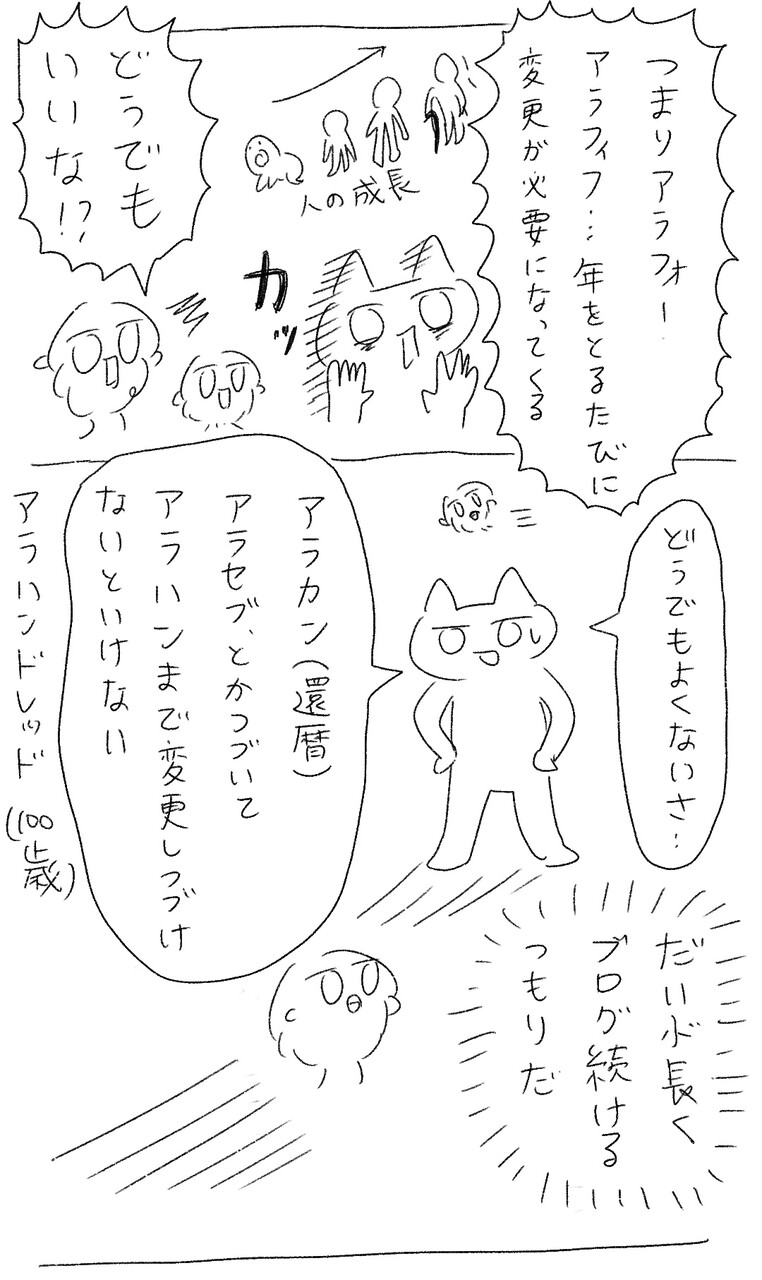 つまりアラフォー
アラフィフ…年をとるたびに
変更が必要になってくる
人の成長
カッ
どうでも
いいな!?
どうでもよくないさ…
アラカン(還暦)
アラセブ、とかつづいて
アラハンまで変更しつづけ
ないといけない
アラハンドレッド
(100歳)
だいぶ長く
ブログ続ける
つもりだ